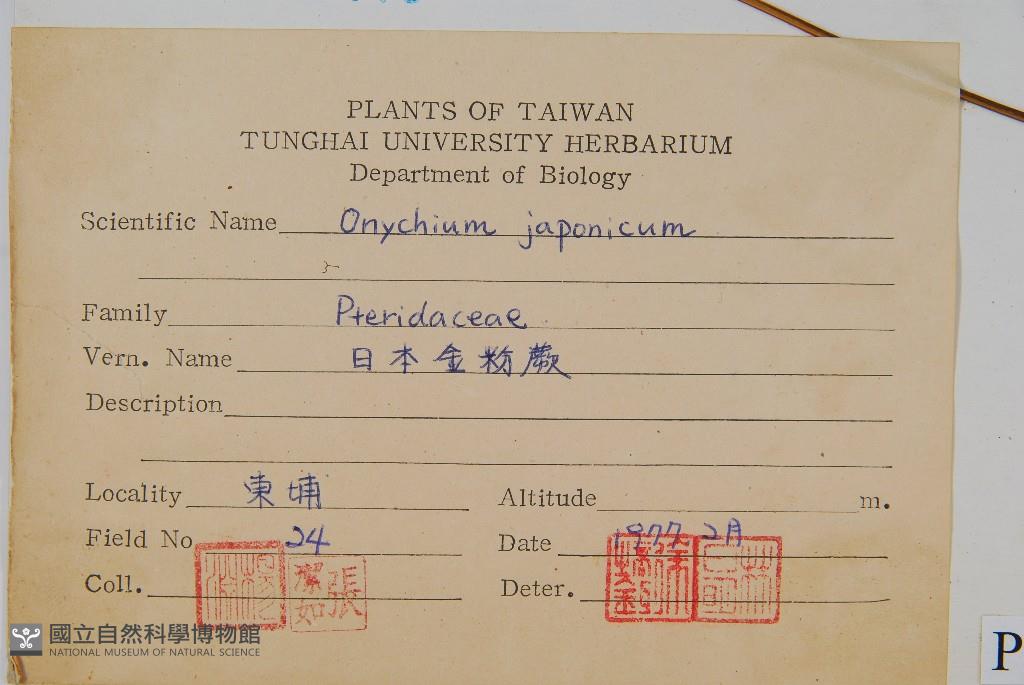 PLANTS OF TAIWAN
TUNGHAI UNIVERSITY HERBARIUM
Department of Biology
Scientific Name Onychium japonicum
Family Pteridaceae
Vern. Name 日本金粉蕨
Description
Locality 東埔 Altitude m.
Field No 24 Date 1977 2月
Coll. 張潔如 Deter.
國立自然科學博物館
NATIONAL MUSEUM OF NATURAL SCIENCE
P